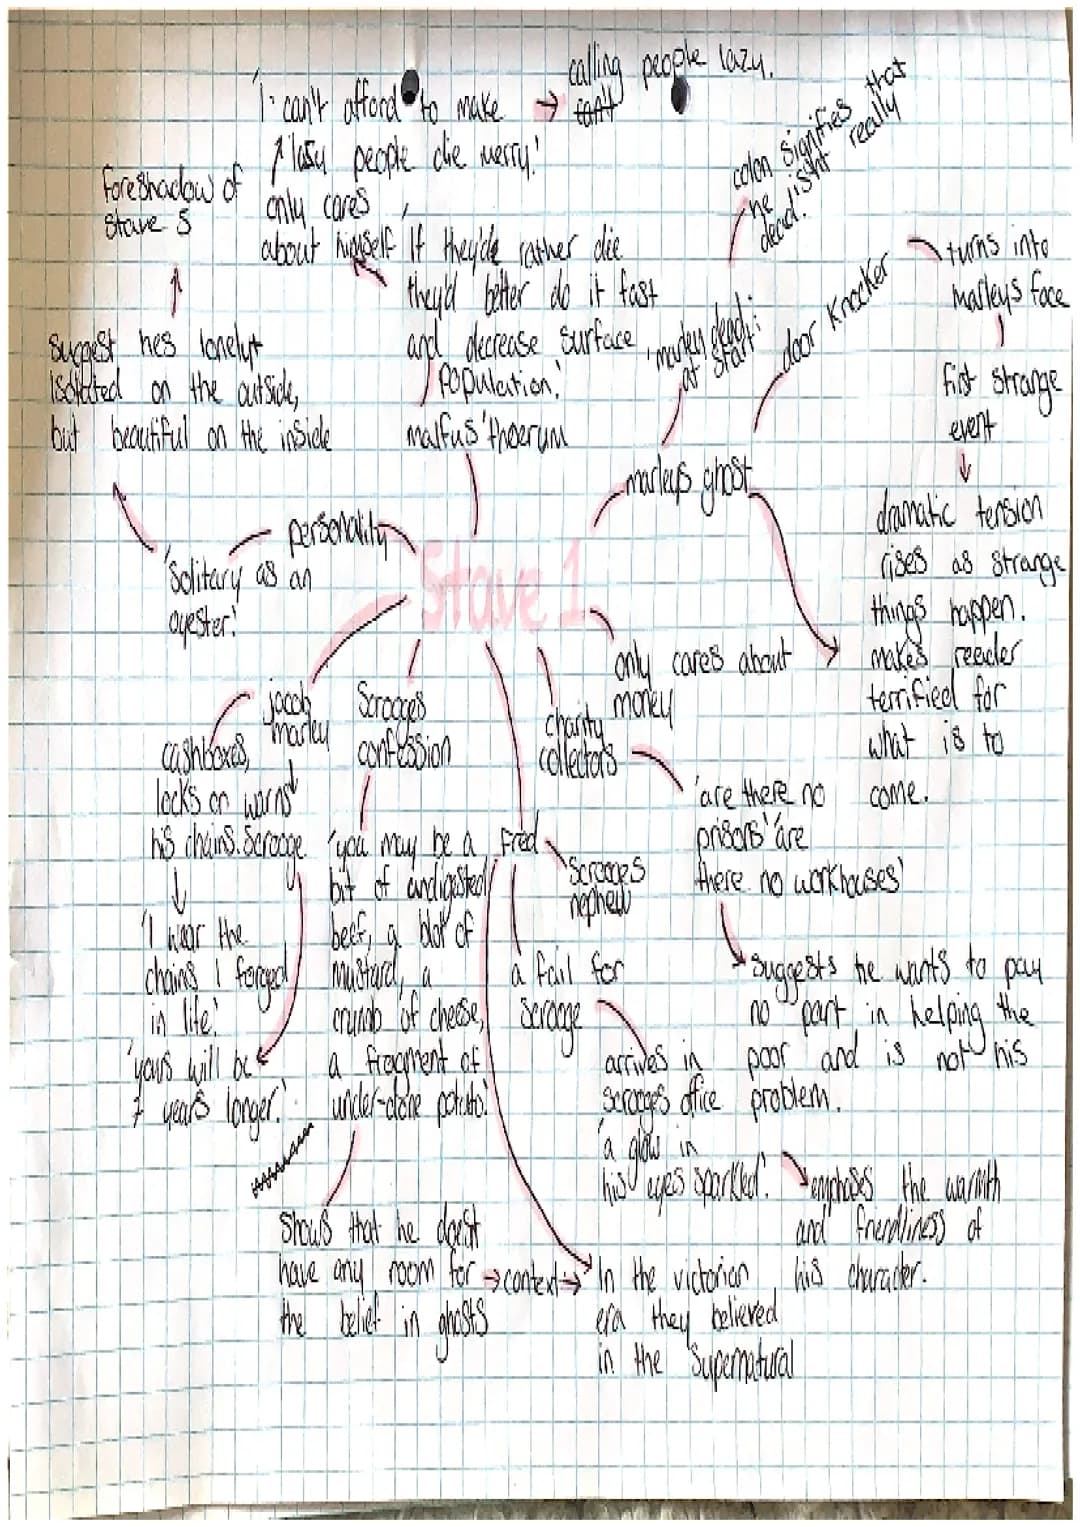 'I can't afford to make
lasy people die merry.'
→ calling people lazy.
only cares
about himself
'If they'de rather die
they'd better do it fast
and decrease surface
population.'
malfus' thoerum
foreshadow of
Stave 5
suggest hes lonely+
isolated on the outside,
but beautiful on the inside
personality
'Solitary as an
oyester.'
Stave 1
marleys ghost
'marley dead:'
at start
colon signifies that
he isnt really
dead.
door knocker
turns into
Marleys face
fist strange
event
dramatic tension
rises as strange
things happen.
makes reeder
terrified for
what is to
come.
only cares about
money
charity
collectors
'are there no
prisons' 'are
there no workhouses'
suggests he wants to pay
no part in helping the
poor and is not his
problem.
jacob
marley
cashboxes,
locks on
his chains.
warns
Scrooge
'I wear the
chains I forged
in life.'
'yours will be
7 years longer.'
Scrooges
confession
'you may be a
bit of undigested
beef, a blot of
mustard, a
crumb of cheese,
a fragment of
under-done potato.'
Shows that he doesnt
have any room for
the belief in ghosts
→ context →
In the victorian
era they believed
in the supernatural
Fred
Scrooges
nephew
a fail for
Scrooge
arrives in
scrooges office
'a glow in
his eyes sparkled.'
emphases the warmth
and friendliness of
his character.